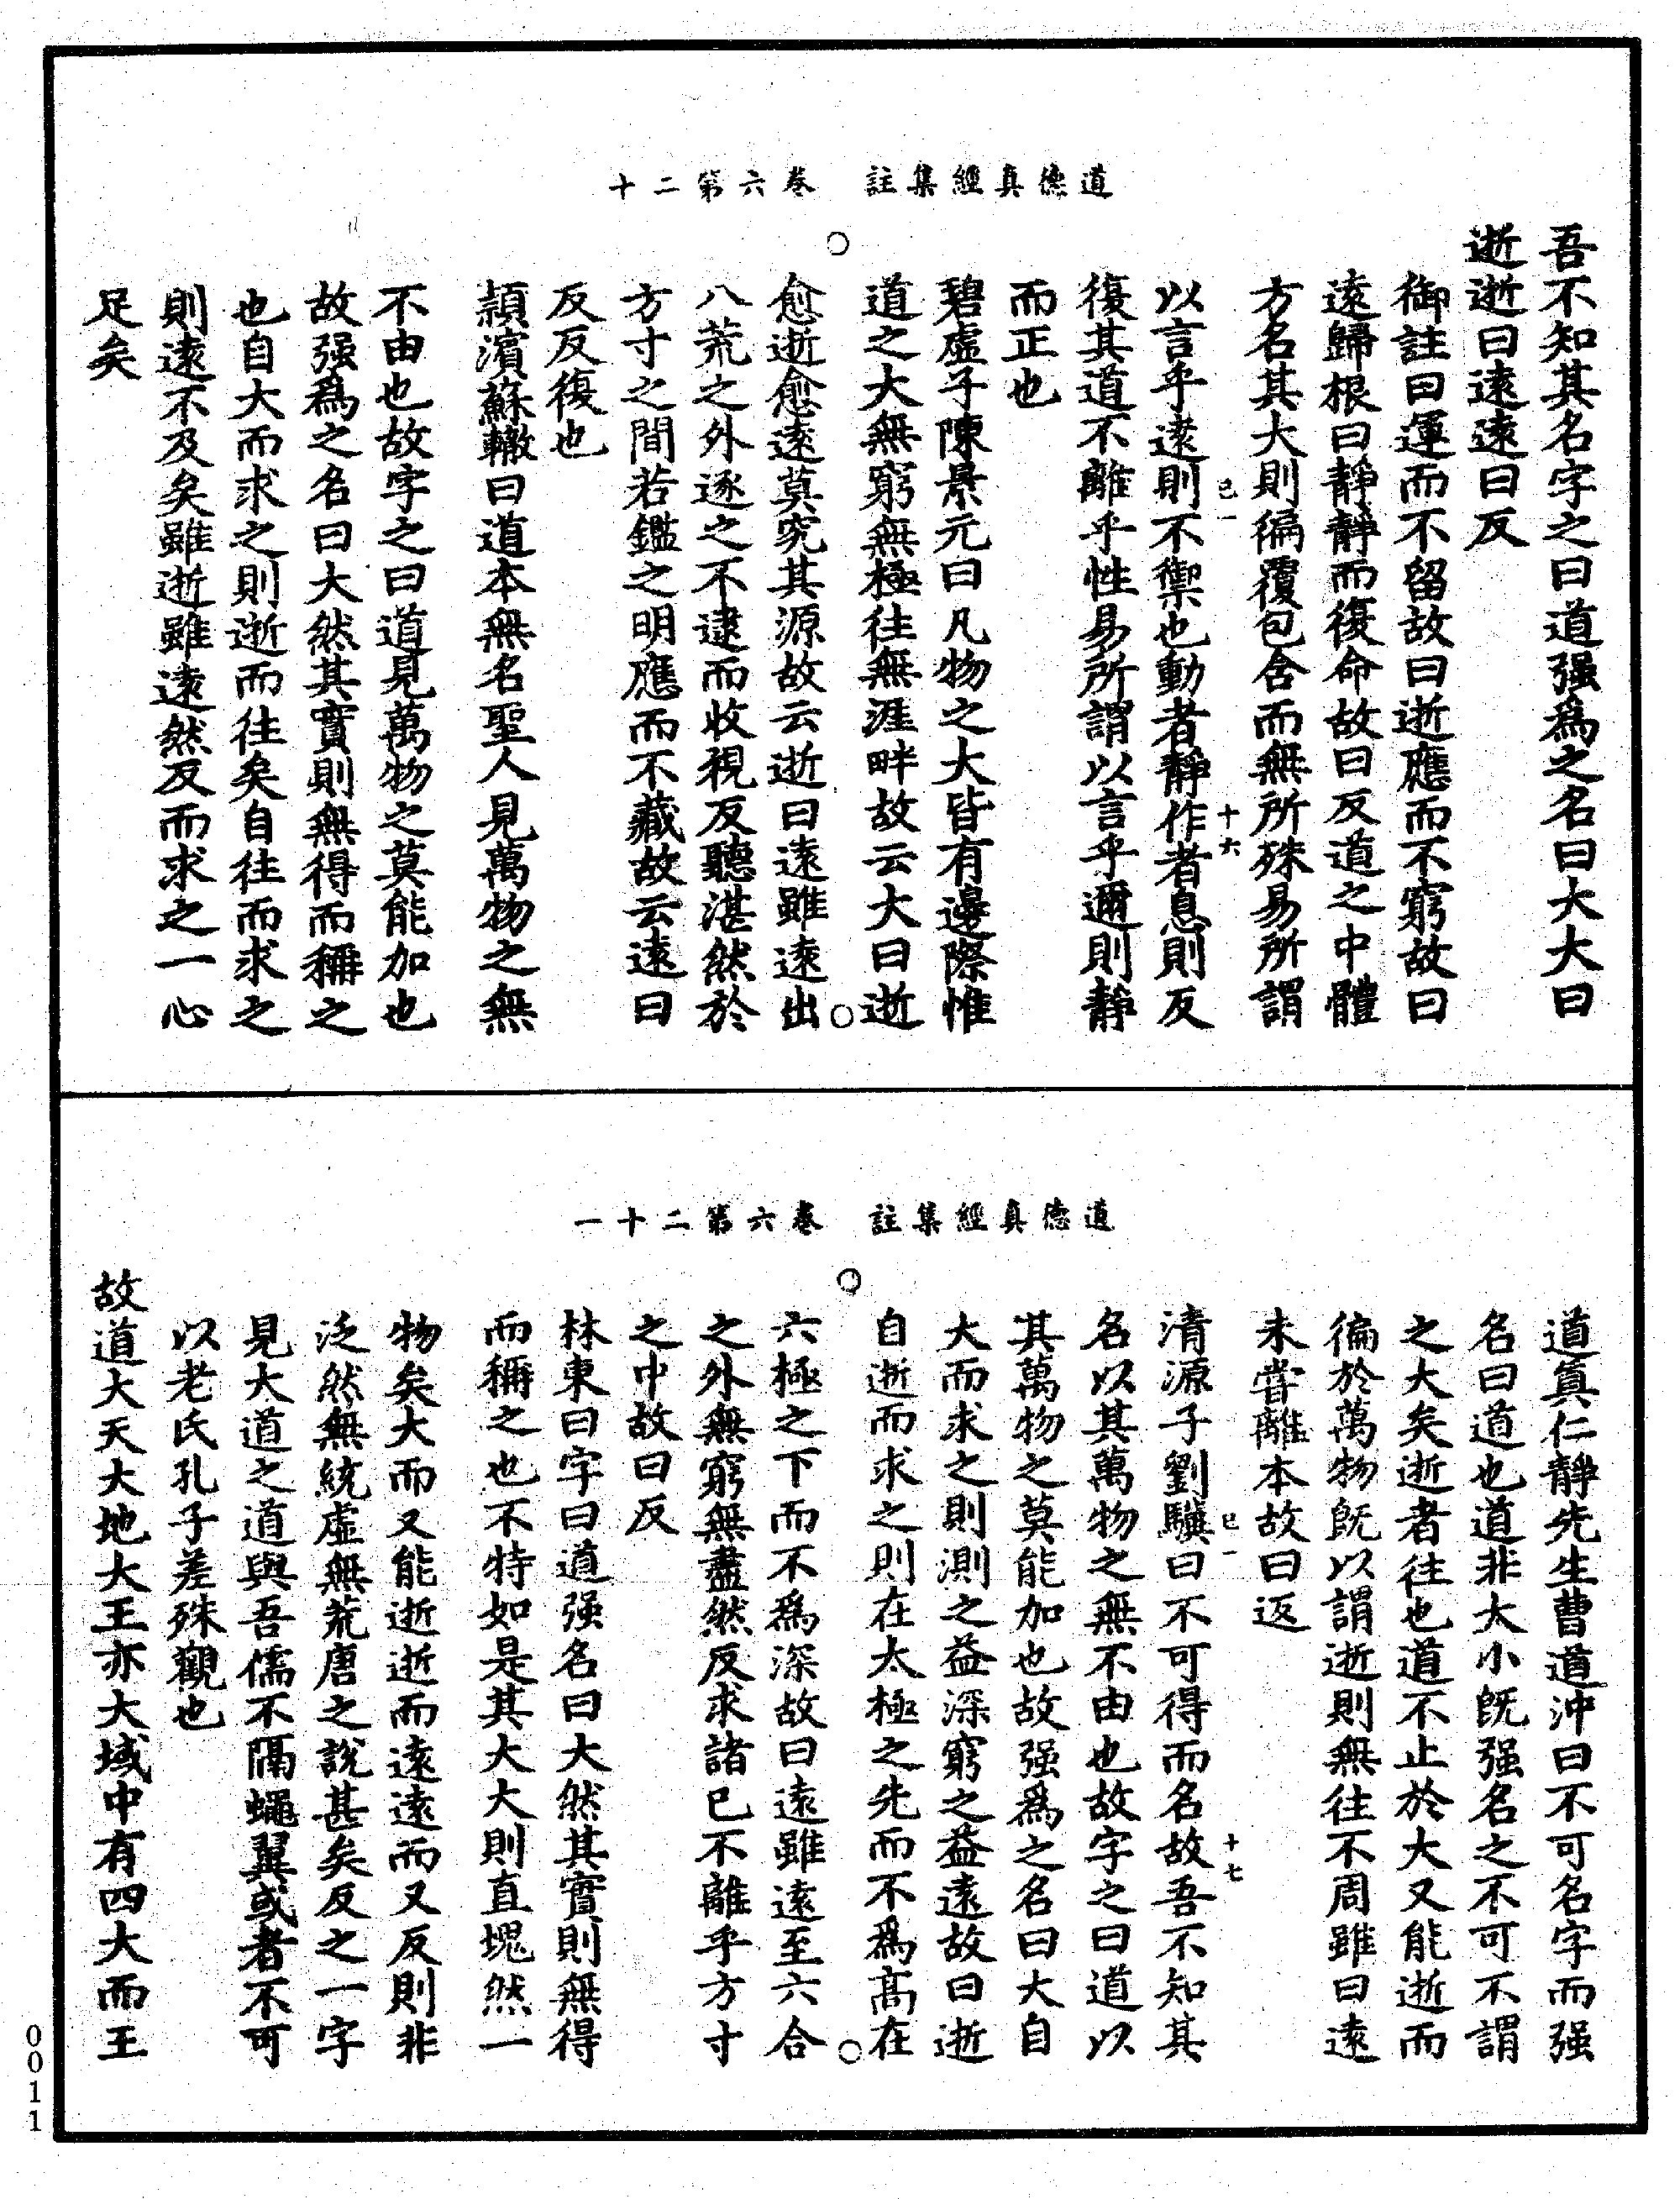 道德真經集註　卷六第二十
吾不知其名字之曰道强爲之名曰大大曰
逝逝曰遠遠曰反
御註曰運而不留故曰逝應而不窮故曰
遠歸根曰靜靜而復命故曰反道之中體
方名其大則徧覆包含而無所殊易所謂
已一　十六
以言乎遠則不禦也動者靜作者息則反
復其道不離乎性易所謂以言乎邇則靜
而正也
碧虛子陳景元曰凡物之大皆有邊際惟
道之大無窮無極往無涯畔故云大曰逝
愈逝愈遠莫究其源故云逝曰遠雖遠出
八荒之外逐之不逮而收視反聽湛然於
方寸之間若鑑之明應而不藏故云遠曰
反反復也
頴濱蘇轍曰道本無名聖人見萬物之無
不由也故字之曰道見萬物之莫能加也
故强爲之名曰大然其實則無得而稱之
也自大而求之則逝而往矣自往而求之
則遠不及矣雖逝雖遠然反而求之一心
足矣
道德真經集註　卷六第二十一
道真仁靜先生曹道沖曰不可名字而强
名曰道也道非大小旣强名之不可不謂
之大矣逝者往也道不止於大又能逝而
徧於萬物旣以謂逝則無往不周雖曰遠
未嘗離本故曰返
已一　十七
清源子劉驥曰不可得而名故吾不知其
名以其萬物之無不由也故字之曰道以
其萬物之莫能加也故强爲之名曰大自
大而求之則測之益深窮之益遠故曰逝
自逝而求之則在太極之先而不爲高在
六極之下而不爲深故曰遠雖遠至六合
之外無窮無盡然反求諸已不離乎方寸
之中故曰反
林東曰字曰道强名曰大然其實則無得
而稱之也不特如是其大大則直塊然一
物矣大而又能逝逝而遠遠而又反則非
泛然無統虛無荒唐之說甚矣反之一字
見大道之道與吾儒不隔蠅翼或者不可
以老氏孔子差殊觀也
故道大天大地大王亦大域中有四大而王
0011